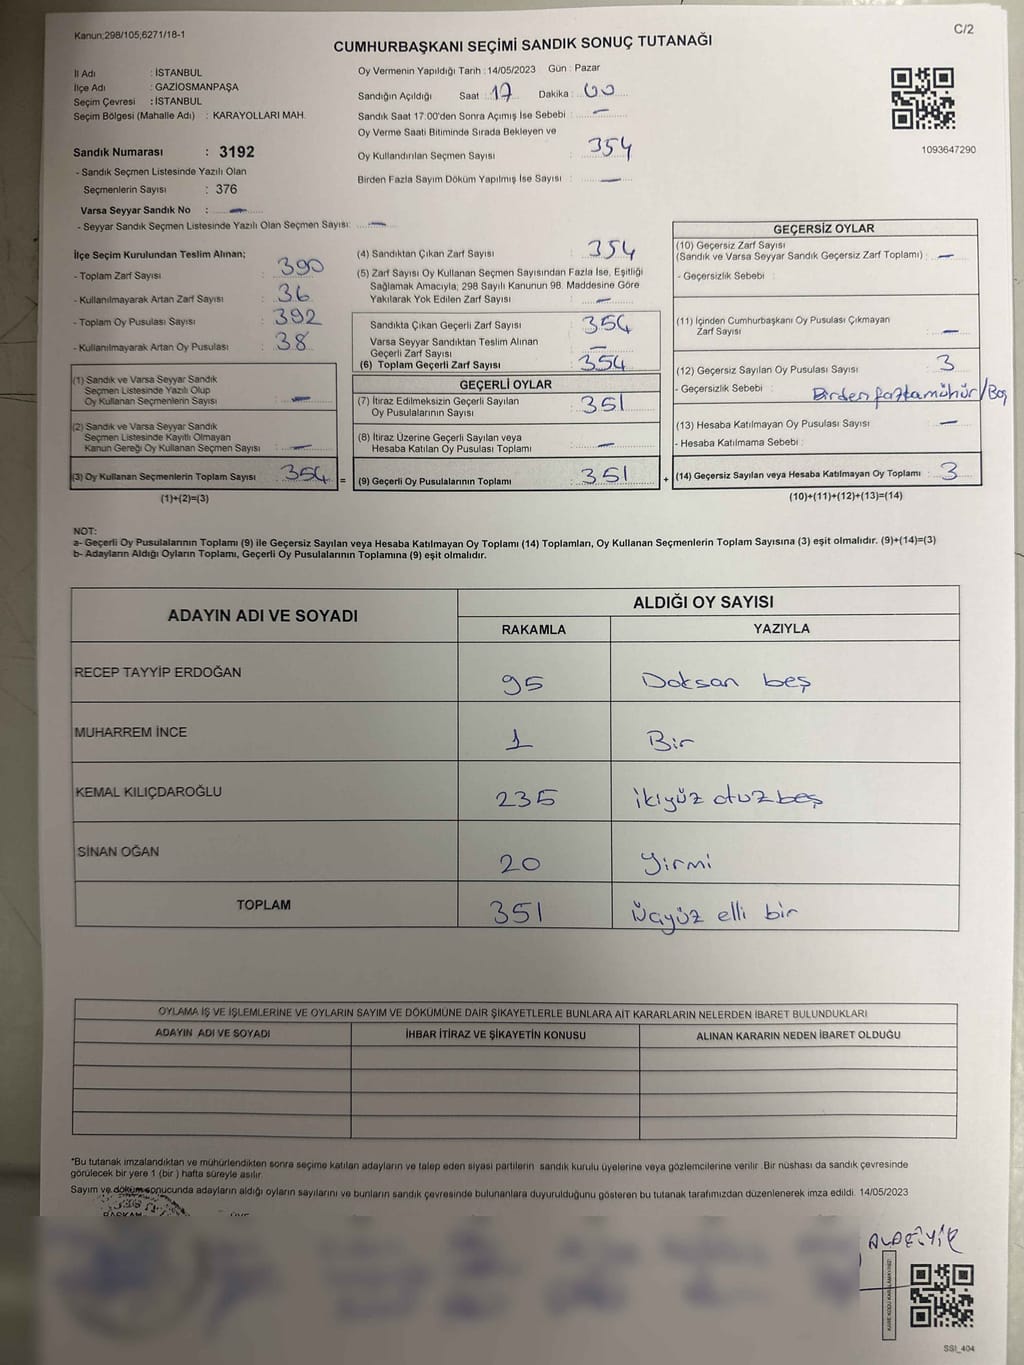 Kanun;298/105;6271/18-1
C/2
CUMHURBAŞKANI SEÇİMİ SANDIK SONUÇ TUTANAĞI
İl Adı : İSTANBUL
İlçe Adı : GAZİOSMANPAŞA
Seçim Çevresi : İSTANBUL
Seçim Bölgesi (Mahalle Adı) : KARAYOLLARI MAH.
Sandık Numarası : 3192
- Sandık Seçmen Listesinde Yazılı Olan
Seçmenlerin Sayısı : 376
Varsa Seyyar Sandık No : -
- Seyyar Sandık Seçmen Listesinde Yazılı Olan Seçmen Sayısı: -
Oy Vermenin Yapıldığı Tarih : 14/05/2023 Gün : Pazar
Sandığın Açıldığı Saat : 17 Dakika : 00
Sandık Saat 17.00'den Sonra Açımış İse Sebebi : -
Oy Verme Saati Bitiminde Sırada Bekleyen ve
Oy Kullandırılan Seçmen Sayısı : 354
Birden Fazla Sayım Döküm Yapılmış İse Sayısı : -
1093647290
İlçe Seçim Kurulundan Teslim Alınan;
- Toplam Zarf Sayısı : 390
- Kullanılmayarak Artan Zarf Sayısı : 36
- Toplam Oy Pusulası Sayısı : 392
- Kullanılmayarak Artan Oy Pusulası : 38
(1) Sandık ve Varsa Seyyar Sandık
Seçmen Listesinde Yazılı Olup
Oy Kullanan Seçmenlerin Sayısı : -
(2) Sandık ve Varsa Seyyar Sandık
Seçmen Listesinde Kayıtlı Olmayan
Kanun Gereği Oy Kullanan Seçmen Sayısı : -
(3) Oy Kullanan Seçmenlerin Toplam Sayısı : 354
(1)+(2)=(3)
=
(4) Sandıktan Çıkan Zarf Sayısı : 354
(5) Zarf Sayısı Oy Kullanan Seçmen Sayısından Fazla İse, Eşitliği
Sağlamak Amacıyla; 298 Sayılı Kanunun 98. Maddesine Göre
Yakılarak Yok Edilen Zarf Sayısı : -
Sandıkta Çıkan Geçerli Zarf Sayısı : 354
Varsa Seyyar Sandıktan Teslim Alınan
Geçerli Zarf Sayısı : -
(6) Toplam Geçerli Zarf Sayısı : 354
GEÇERLİ OYLAR
(7) İtiraz Edilmeksizin Geçerli Sayılan
Oy Pusulalarının Sayısı : 351
(8) İtiraz Üzerine Geçerli Sayılan veya
Hesaba Katılan Oy Pusulası Toplamı : -
(9) Geçerli Oy Pusulalarının Toplamı : 351
+
GEÇERSİZ OYLAR
(10) Geçersiz Zarf Sayısı
(Sandık ve Varsa Seyyar Sandık Geçersiz Zarf Toplamı) : -
- Geçersizlik Sebebi :
(11) İçinden Cumhurbaşkanı Oy Pusulası Çıkmayan
Zarf Sayısı : -
(12) Geçersiz Sayılan Oy Pusulası Sayısı : 3
- Geçersizlik Sebebi : Birden fazla mühür/Boş
(13) Hesaba Katılmayan Oy Pusulası Sayısı : -
- Hesaba Katılmama Sebebi :
(14) Geçersiz Sayılan veya Hesaba Katılmayan Oy Toplamı : 3
(10)+(11)+(12)+(13)=(14)
NOT:
a- Geçerli Oy Pusulalarının Toplamı (9) ile Geçersiz Sayılan veya Hesaba Katılmayan Oy Toplamı (14) Toplamları, Oy Kullanan Seçmenlerin Toplam Sayısına (3) eşit olmalıdır. (9)+(14)=(3)
b- Adayların Aldığı Oyların Toplamı, Geçerli Oy Pusulalarının Toplamına (9) eşit olmalıdır.
ADAYIN ADI VE SOYADI ALDIĞI OY SAYISI
RAKAMLA YAZIYLA
RECEP TAYYİP ERDOĞAN 95 Doksan beş
MUHARREM İNCE 1 Bir
KEMAL KILIÇDAROĞLU 235 ikiyüz otuzbeş
SİNAN OĞAN 20 Yirmi
TOPLAM 351 Üçyüz elli bir
OYLAMA İŞ VE İŞLEMLERİNE VE OYLARIN SAYIM VE DÖKÜMÜNE DAİR ŞİKAYETLERLE BUNLARA AİT KARARLARIN NELERDEN İBARET BULUNDUKLARI
ADAYIN ADI VE SOYADI İHBAR İTİRAZ VE ŞİKAYETİN KONUSU ALINAN KARARIN NEDEN İBARET OLDUĞU
*Bu tutanak imzalandıktan ve mühürlendikten sonra seçime katılan adayların ve talep eden siyasi partilerin sandık kurulu üyelerine veya gözlemcilerine verilir .Bir nüshası da sandık çevresinde
görülecek bir yere 1 (bir ) hafta süreyle asılır.
Sayım ve döküm sonucunda adayların aldığı oyların sayılarını ve bunların sandık çevresinde bulunanlara duyurulduğunu gösteren bu tutanak tarafımızdan düzenlenerek imza edildi. 14/05/2023
BAŞKAN
ÜYE
SSİ_404